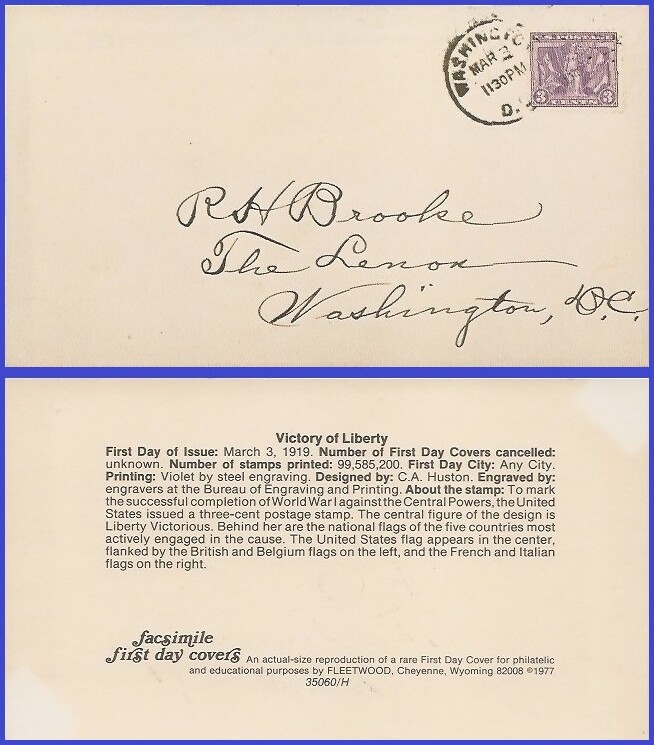 WASHINGTO
MAR 3
1130PM
D.
3 CENTS 3
R H Brooke
The Lenox
Washington, D.C.
Victory of Liberty
First Day of Issue: March 3, 1919. Number of First Day Covers cancelled:
unknown. Number of stamps printed: 99,585,200. First Day City: Any City.
Printing: Violet by steel engraving. Designed by: C.A. Huston. Engraved by:
engravers at the Bureau of Engraving and Printing. About the stamp: To mark
the successful completion of World War I against the Central Powers, the United
States issued a three-cent postage stamp. The central figure of the design is
Liberty Victorious. Behind her are the national flags of the five countries most
actively engaged in the cause. The United States flag appears in the center,
flanked by the British and Belgium flags on the left, and the French and Italian
flags on the right.
facsimile
first day covers An actual-size reproduction of a rare First Day Cover for philatelic
and educational purposes by FLEETWOOD, Cheyenne, Wyoming 82008 ©1977
35060/H